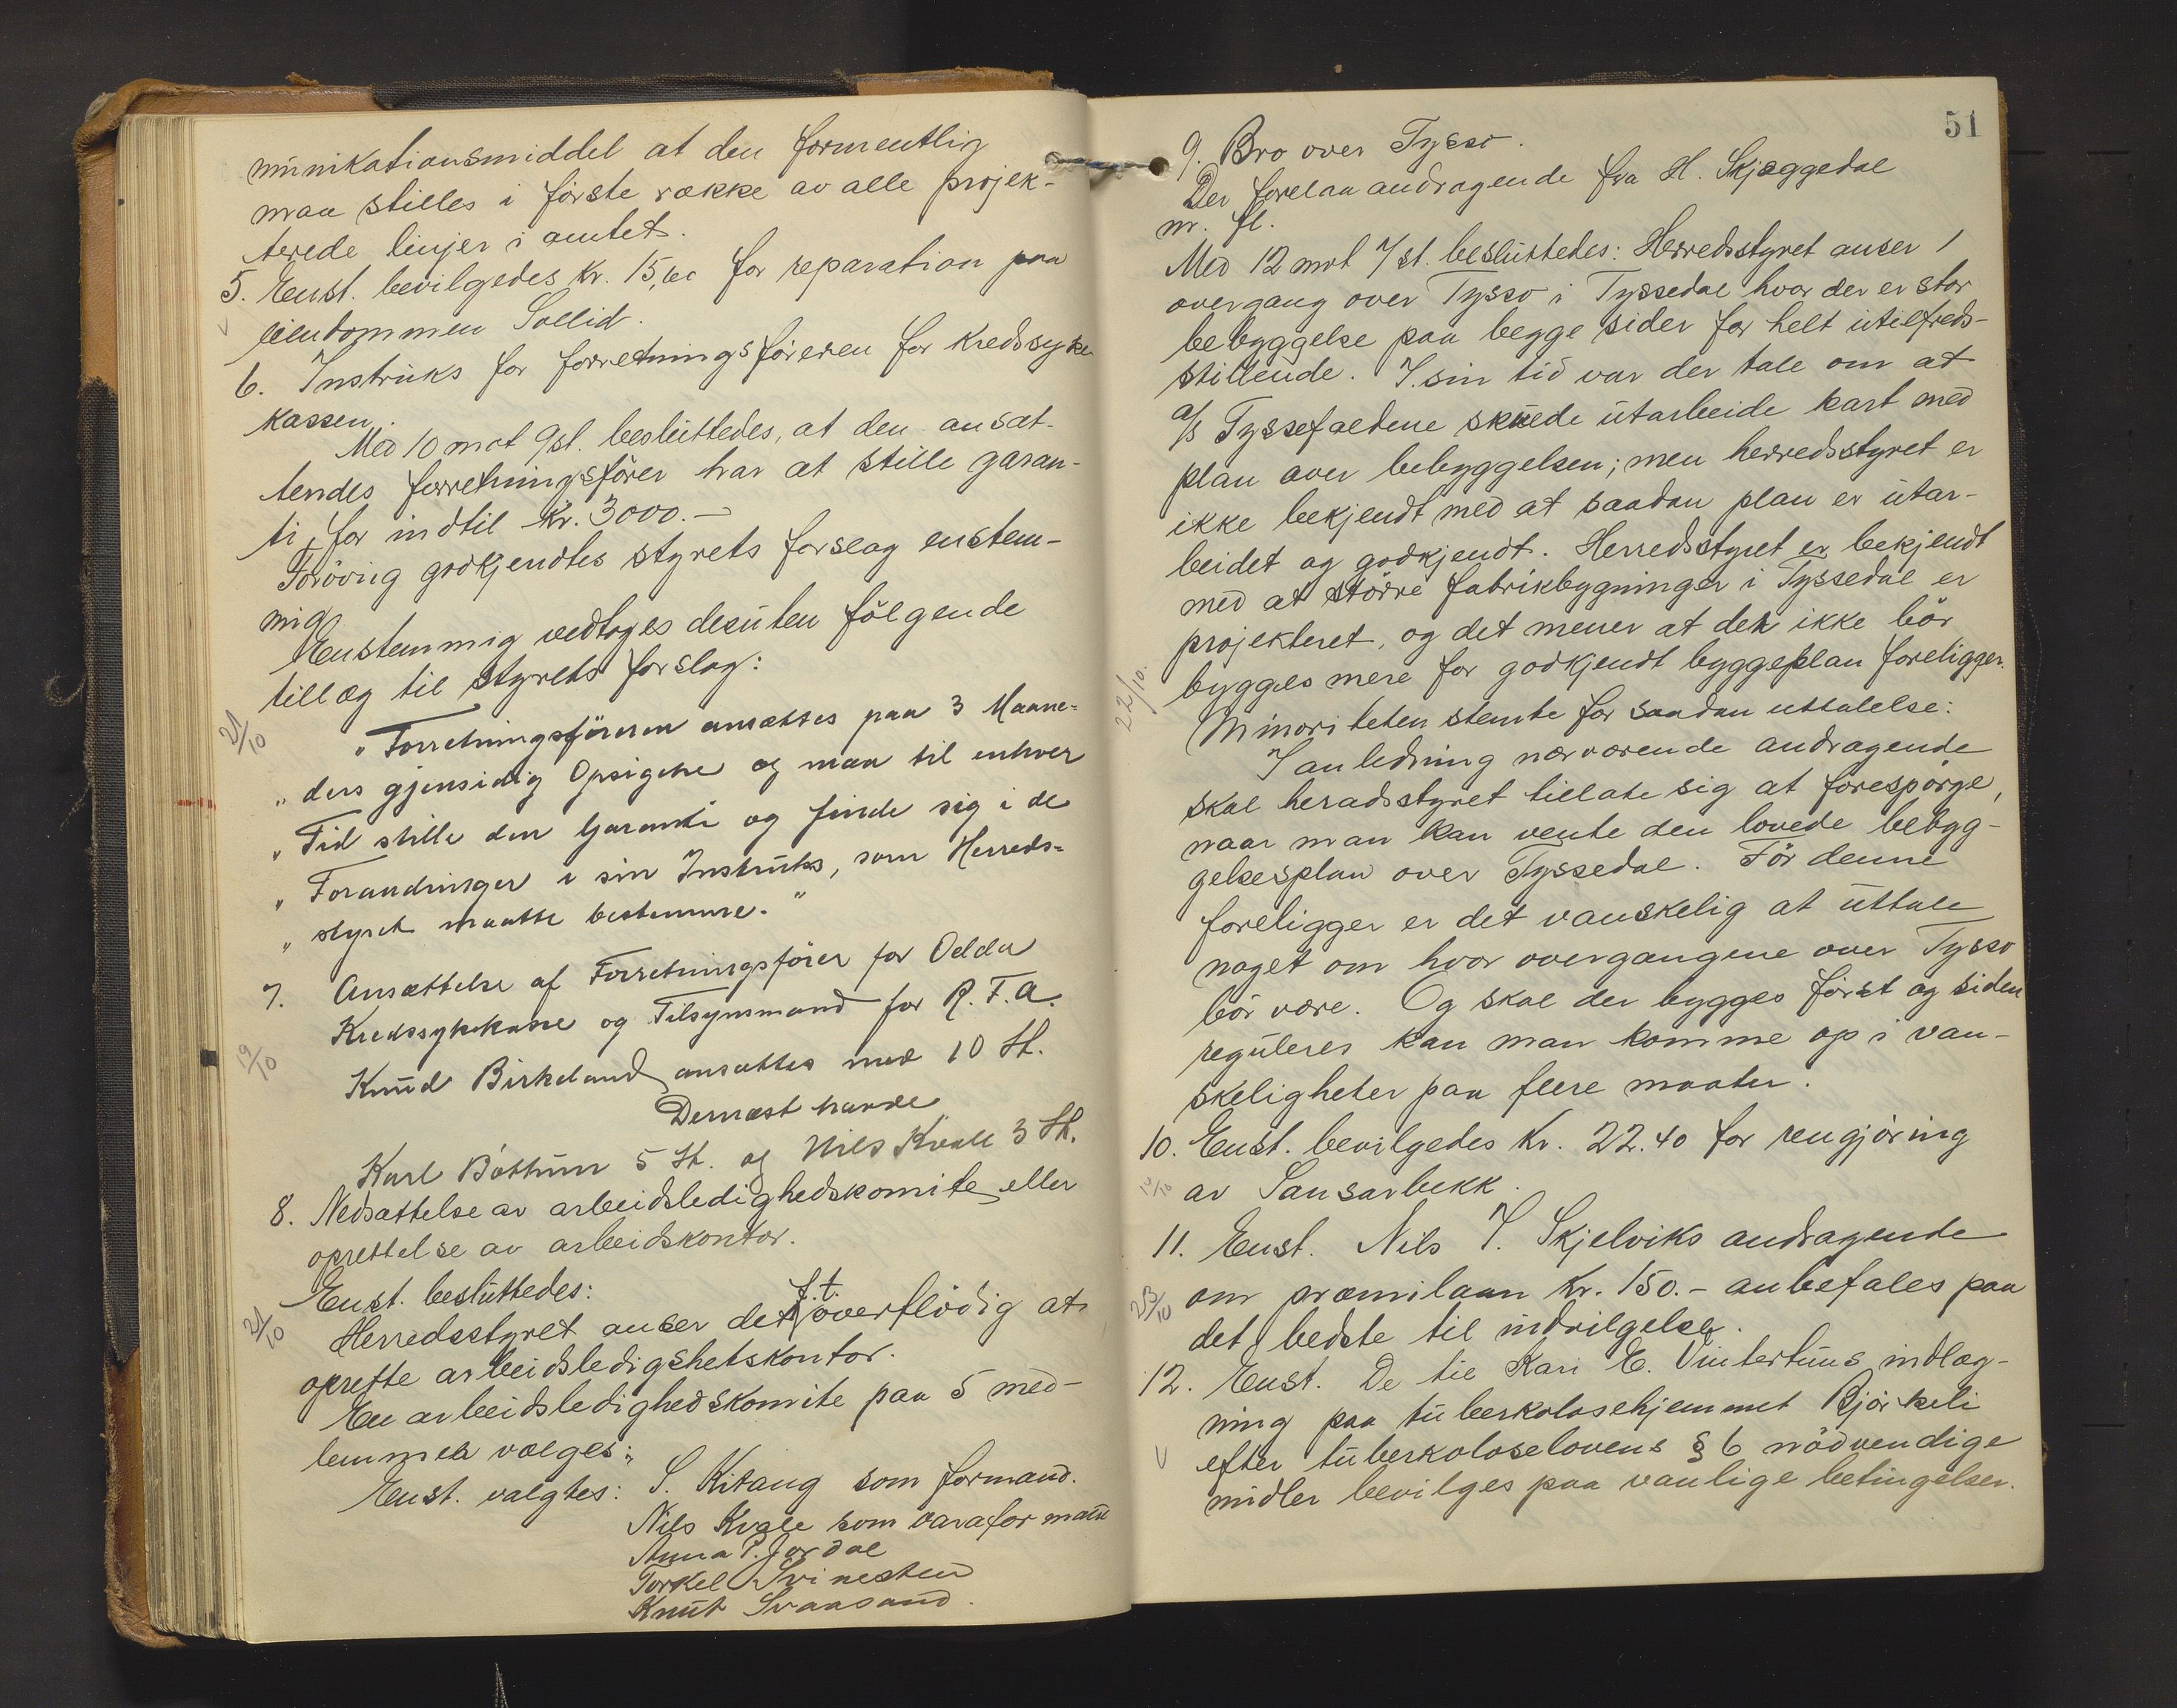 munikationsmiddel at den formentlig
maa stilles i første række av alle projek-
terede linjer i amtet.
5. Enst. bevilgedes Kr. 15,00 for reparation paa
eiendommen Sollid.
6. Instruks for forretningsføreren for Kredssyke
kassen.
Med 10 mot 9 st. besluttedes, at den ansat-
tendes forretningsfører har at stille garan-
ti for indtil Kr. 3000.-
Forøvrig godkjendtes styrets forslag enstem-
mig
Enstemmig vedtoges desuten følgende
tillæg til styrets forslag:
21/10
"Forretningsføreren ansættes paa 3 Maane-
"ders gjensidig Opsigelse og maa til enhver
"Tid stille den Garanti og finde sig i de
"Forandringer i sin Instruks, som Herreds-
"styret maatte bestemme."
7. Ansættelse af Forretningsfører for Odda
Kredssykekasse og Tilsynsmand for R.F.A.
19/10
Knud Birkeland ansattes med 10 St.
Dernæst havde
Karl Bøthun 5 St. og Nils Kvale 3 St.
8. Nedsættelse av arbeidsledighedskomite eller
oprettelse av arbeidskontor.
Enst. besluttedes:
21/10
Herredsstyret anser det f.t. overflødig at
oprette arbeidsledigshetskontor.
En arbeidsledighedskomite paa 5 med-
lemmer vælges;
Enst. valgtes: S. Kitang som formand.
Nils Kvale som varaformand
Anna P. Jordal
Torkel Tvinesteen
Knut Svaasand.
51
9. Bro over Tysso.
Der forelaa andragende fra H. Skjæggedal
m. fl.
Med 12 mot 7 st. besluttedes: Herredsstyret anser 1
overgang over Tysso i Tyssedal hvor der er stor
bebyggelse paa begge sider for helt utilfreds-
stillende. I sin tid var der tale om at
a/s Tyssefaldene skulde utarbeide kart med
plan over bebyggelsen; men herredsstyret er
ikke bekjendt med at saadan plan er utar-
beidet og godkjendt. Herredsstyret er bekjendt
med at større fabrikbygninger i Tyssedal er
projekteret, og det mener at der ikke bør
bygges mere før godkjendt byggeplan foreligger.
22/10.
Minoriteten stemte for saadan uttalelse:
I anledning nærværende andragende
skal heradsstyret tillate sig at forespørge,
naar man kan vente den lovede bebyg-
gelsesplan over Tyssedal. Før denne
foreligger er det vanskelig at uttale
noget om hvor overgangene over Tysso
bør være. Og skal der bygges først og siden
reguleres kan man komme op i van-
skeligheter paa flere maater.
10. Enst. bevilgedes Kr. 22.40 for rengjøring
av Sansarbekk.
11. Enst. Nils T. Skjelviks andragende
om præmilaan Kr. 150.- anbefales paa
23/10
det bedste til indvilgelse.
12. Enst. De til Kari E. Vintertuns indlæg-
ning paa tuberkolosehjemmet Bjørkeli
efter tuberkoloselovens § 6 nødvendige
midler bevilges paa vanlige betingelser.